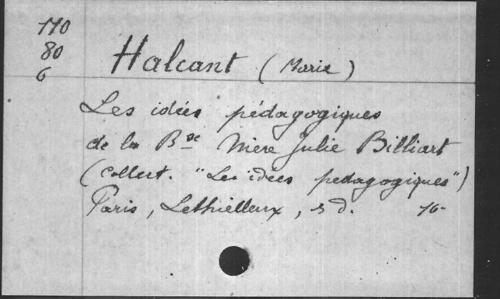 170
80
6
Halcant (Marie)
Les idées pédagogiques
de la Bse Mère Julie Billiart
(collect. "Les idées pedagogiques")
Paris, Lethielleux, s d. 16-